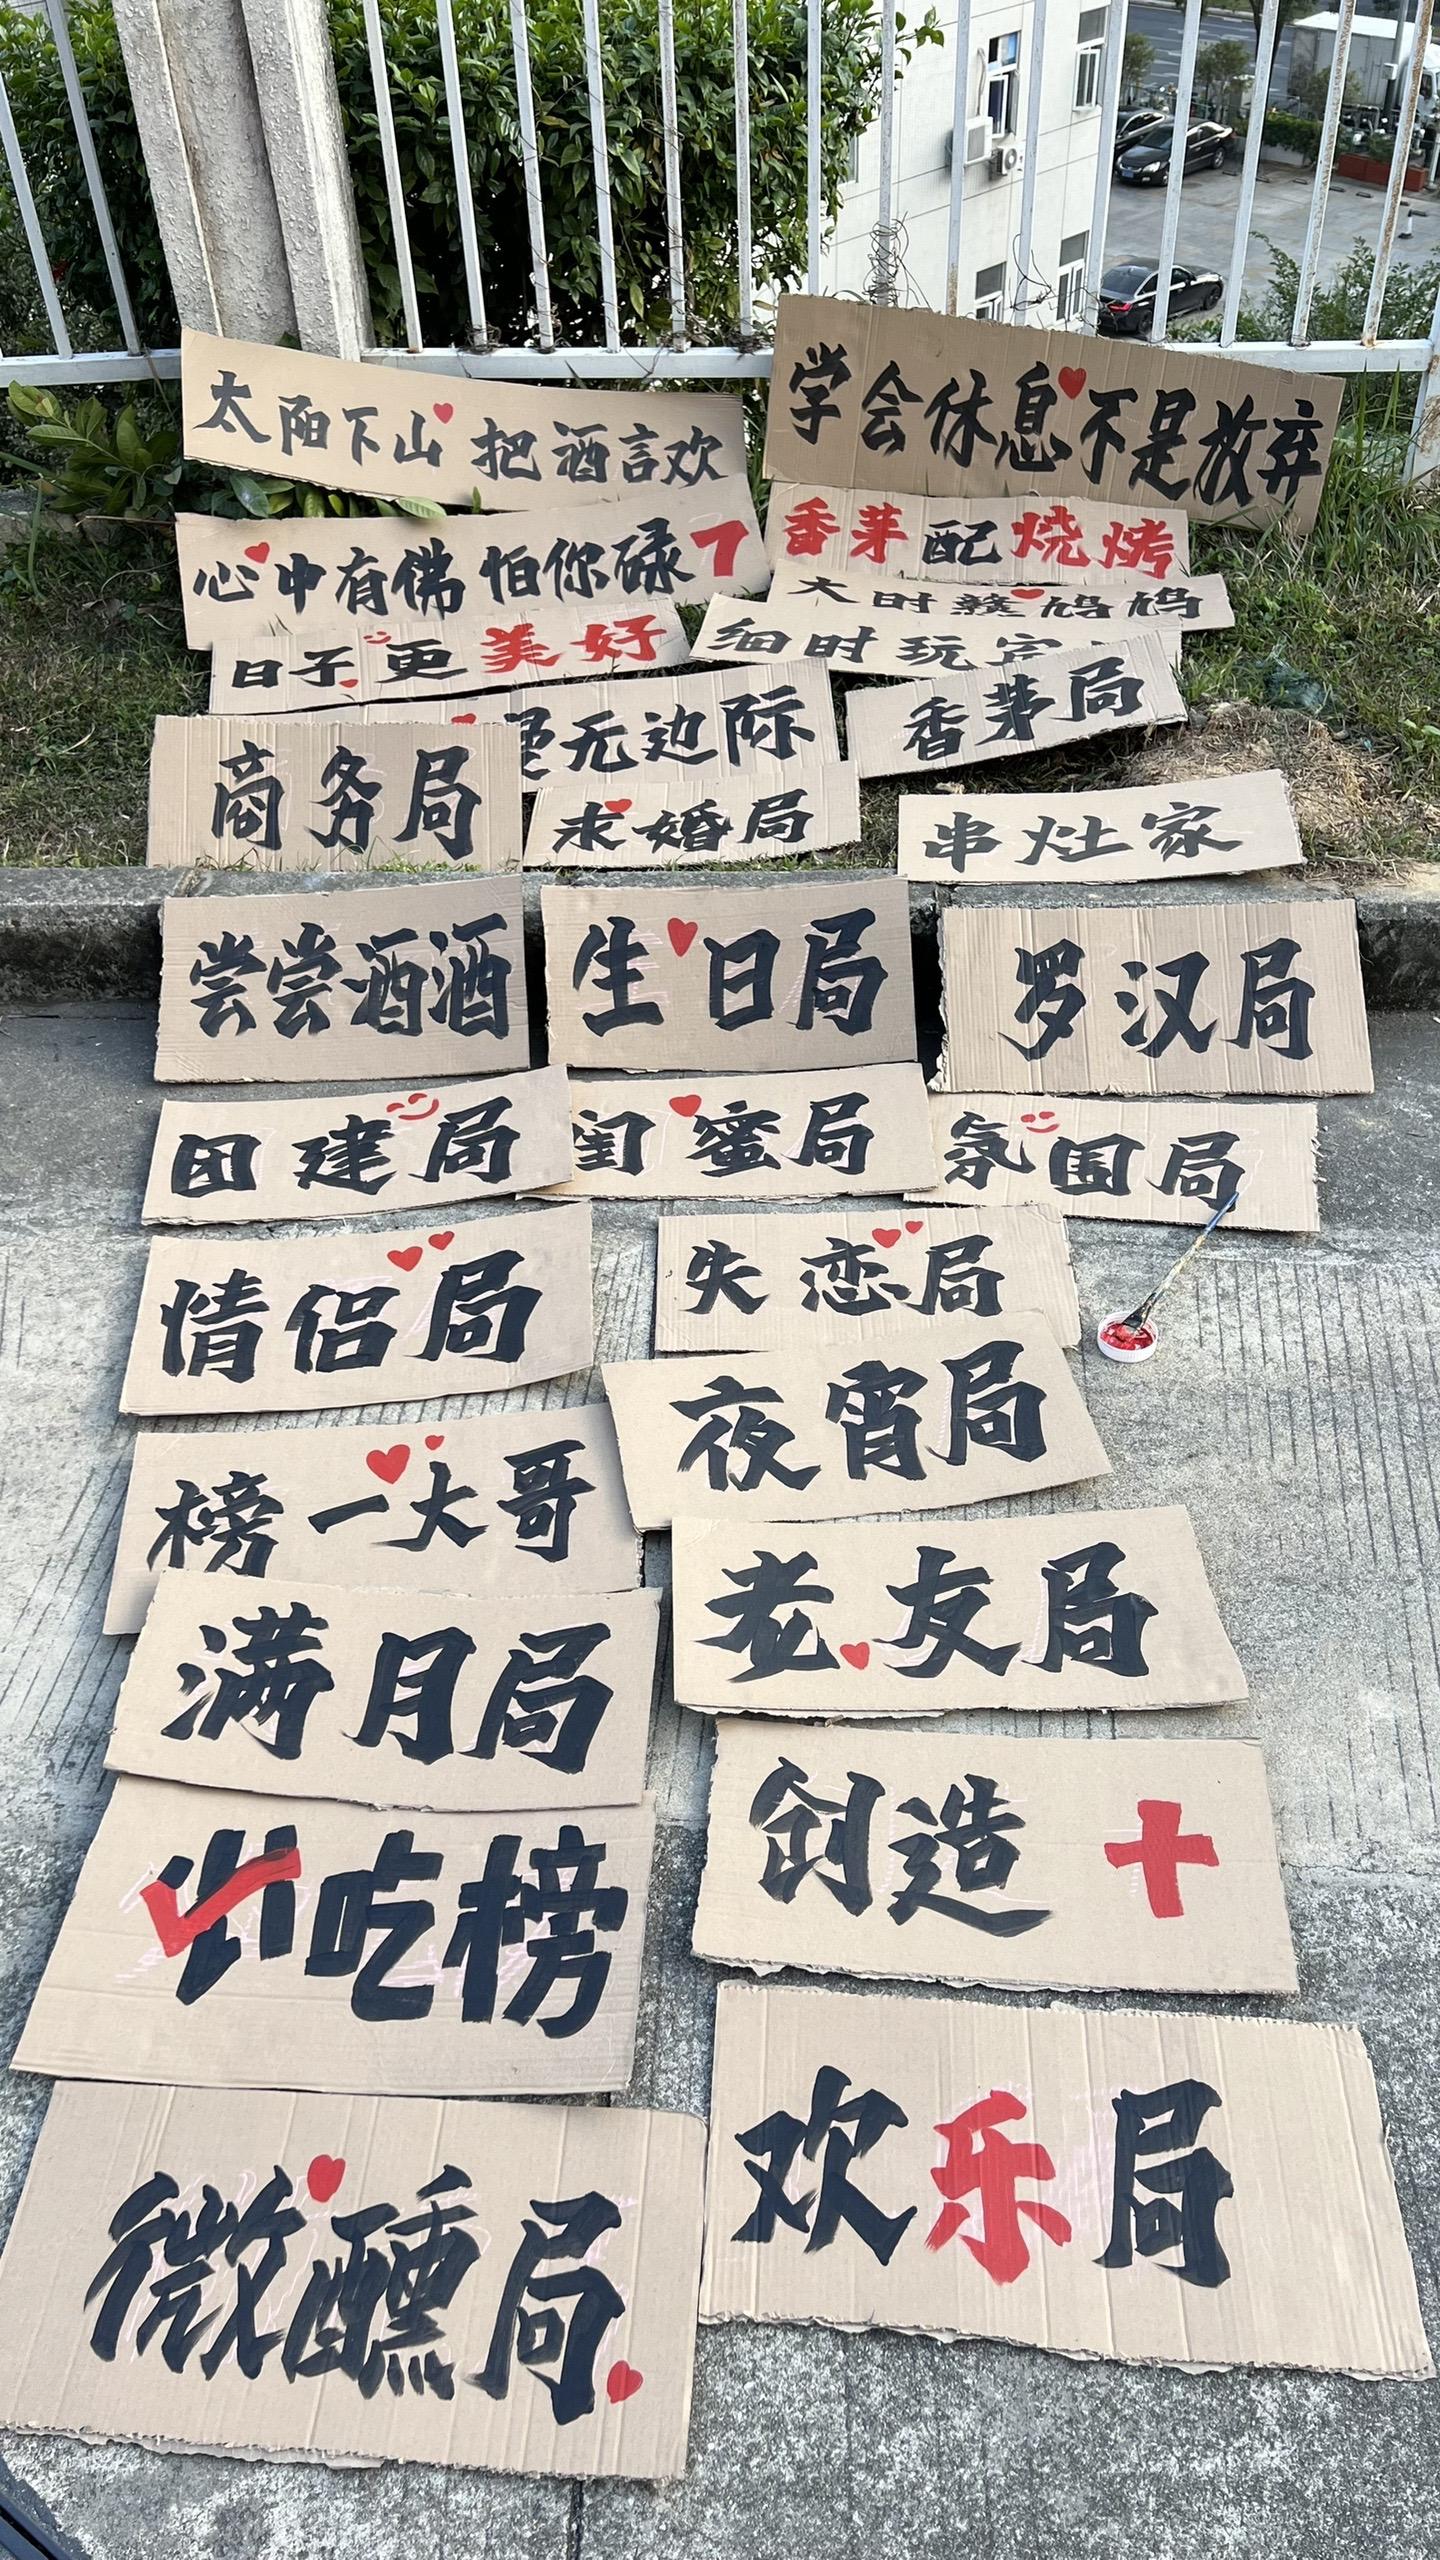 太阳下山 把酒言欢
学会休息不是放弃
心中有佛 怕你碌7
香茅配烧烤
大时㷫鸠鸠
细时玩
日子更美好
无边际
香茅局
商务局
求婚局
串灶家
尝尝酒酒
生日局
罗汉局
团建局
闺蜜局
氛围局
情侣局
失恋局
夜宵局
榜一大哥
老友局
满月局
创造+
必吃榜
欢乐局
微醺局